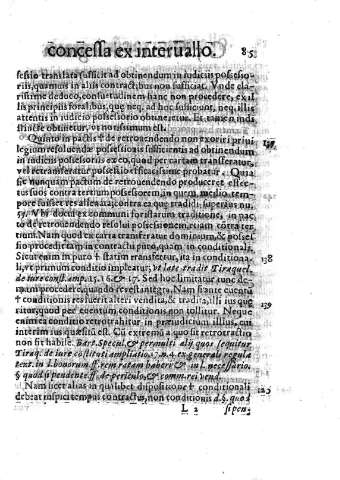 conceſſa ex interuallo. 85
ſeſsio translata ſufficit ad obtinendum in iudiciis poſſeſſo-
riis, quamuis in aliis contractibus non ſufficiat. Vnde cla-
riſsime deduco, conſuetudinem hanc non procedere, ex il
lis principiis foralibus, quę neq. ad hoc ſufficiunt, neq. illis
attentis in iudicio poſſeſſorio obtinetur. Et tamen indi
ſtincte obtinetur, vt notiſsimum eſt.
Quinto in pactis † de retrouendendo non exoriri priui
legium reſoluendę poſſeſsionis ſufficientis ad obtinendum 137
in iudiciis poſſeſſoriis ex eo, quod per cartam transferatur,
vel retransferatur poſſeſsio efficacissime probatur. Quia
ſic nunquam pactum de retrouendendo produceret effec-
tus ſuos contra tertium poſſeſſorem, in quem medio tem-
pore fuiſſet res alienata;
51. Vbi doctũ ex communi foriſtarum traditione, in pac
to de retrouendendo reſolui poſſeſsionem, etiam contra ter
tium. Nam quod ex carta transferatur dominium, & poſſeſ
ſio procedit tam in contractu puro, quam in conditionali,
Sicut enim in puro † ſtatim transfertur, ita in conditiona- 138
li, vt primum conditio impleatur; vt late tradit Tiraquel.
de iure conſt. amp. 15. 16. & 17. Sed hoc limitatur
nem procedit quando res eſt integra. Nam ſtante euentu
† conditionis res fuerit alteri vendita, & tradita, illi ius quę 139
ritur, quod per euentum conditionis non tollitur. Neque
euentus conditio retrotrahitur in pręiudicium illius, cui
interim ius quęſitũ eſt. Cũ extrema a quo fit retrotractio
non ſit habile. Bart. Specul. & permulti alij quos ſequitur
Tiraq. de iure conſtituti ampliatio. 17. n. 4. ex generali regula
text. in l. bonorum ff. rem ratam haberi & in l. neceſſario.
§ quod ſi pendente. ff. de periculo, & comm. rei vend.
Nam licet alias in qualibet diſpoſitione † conditionali
debeat inſpici tempus contractus, non conditionis d. §. quod
L 2 ſi pen-